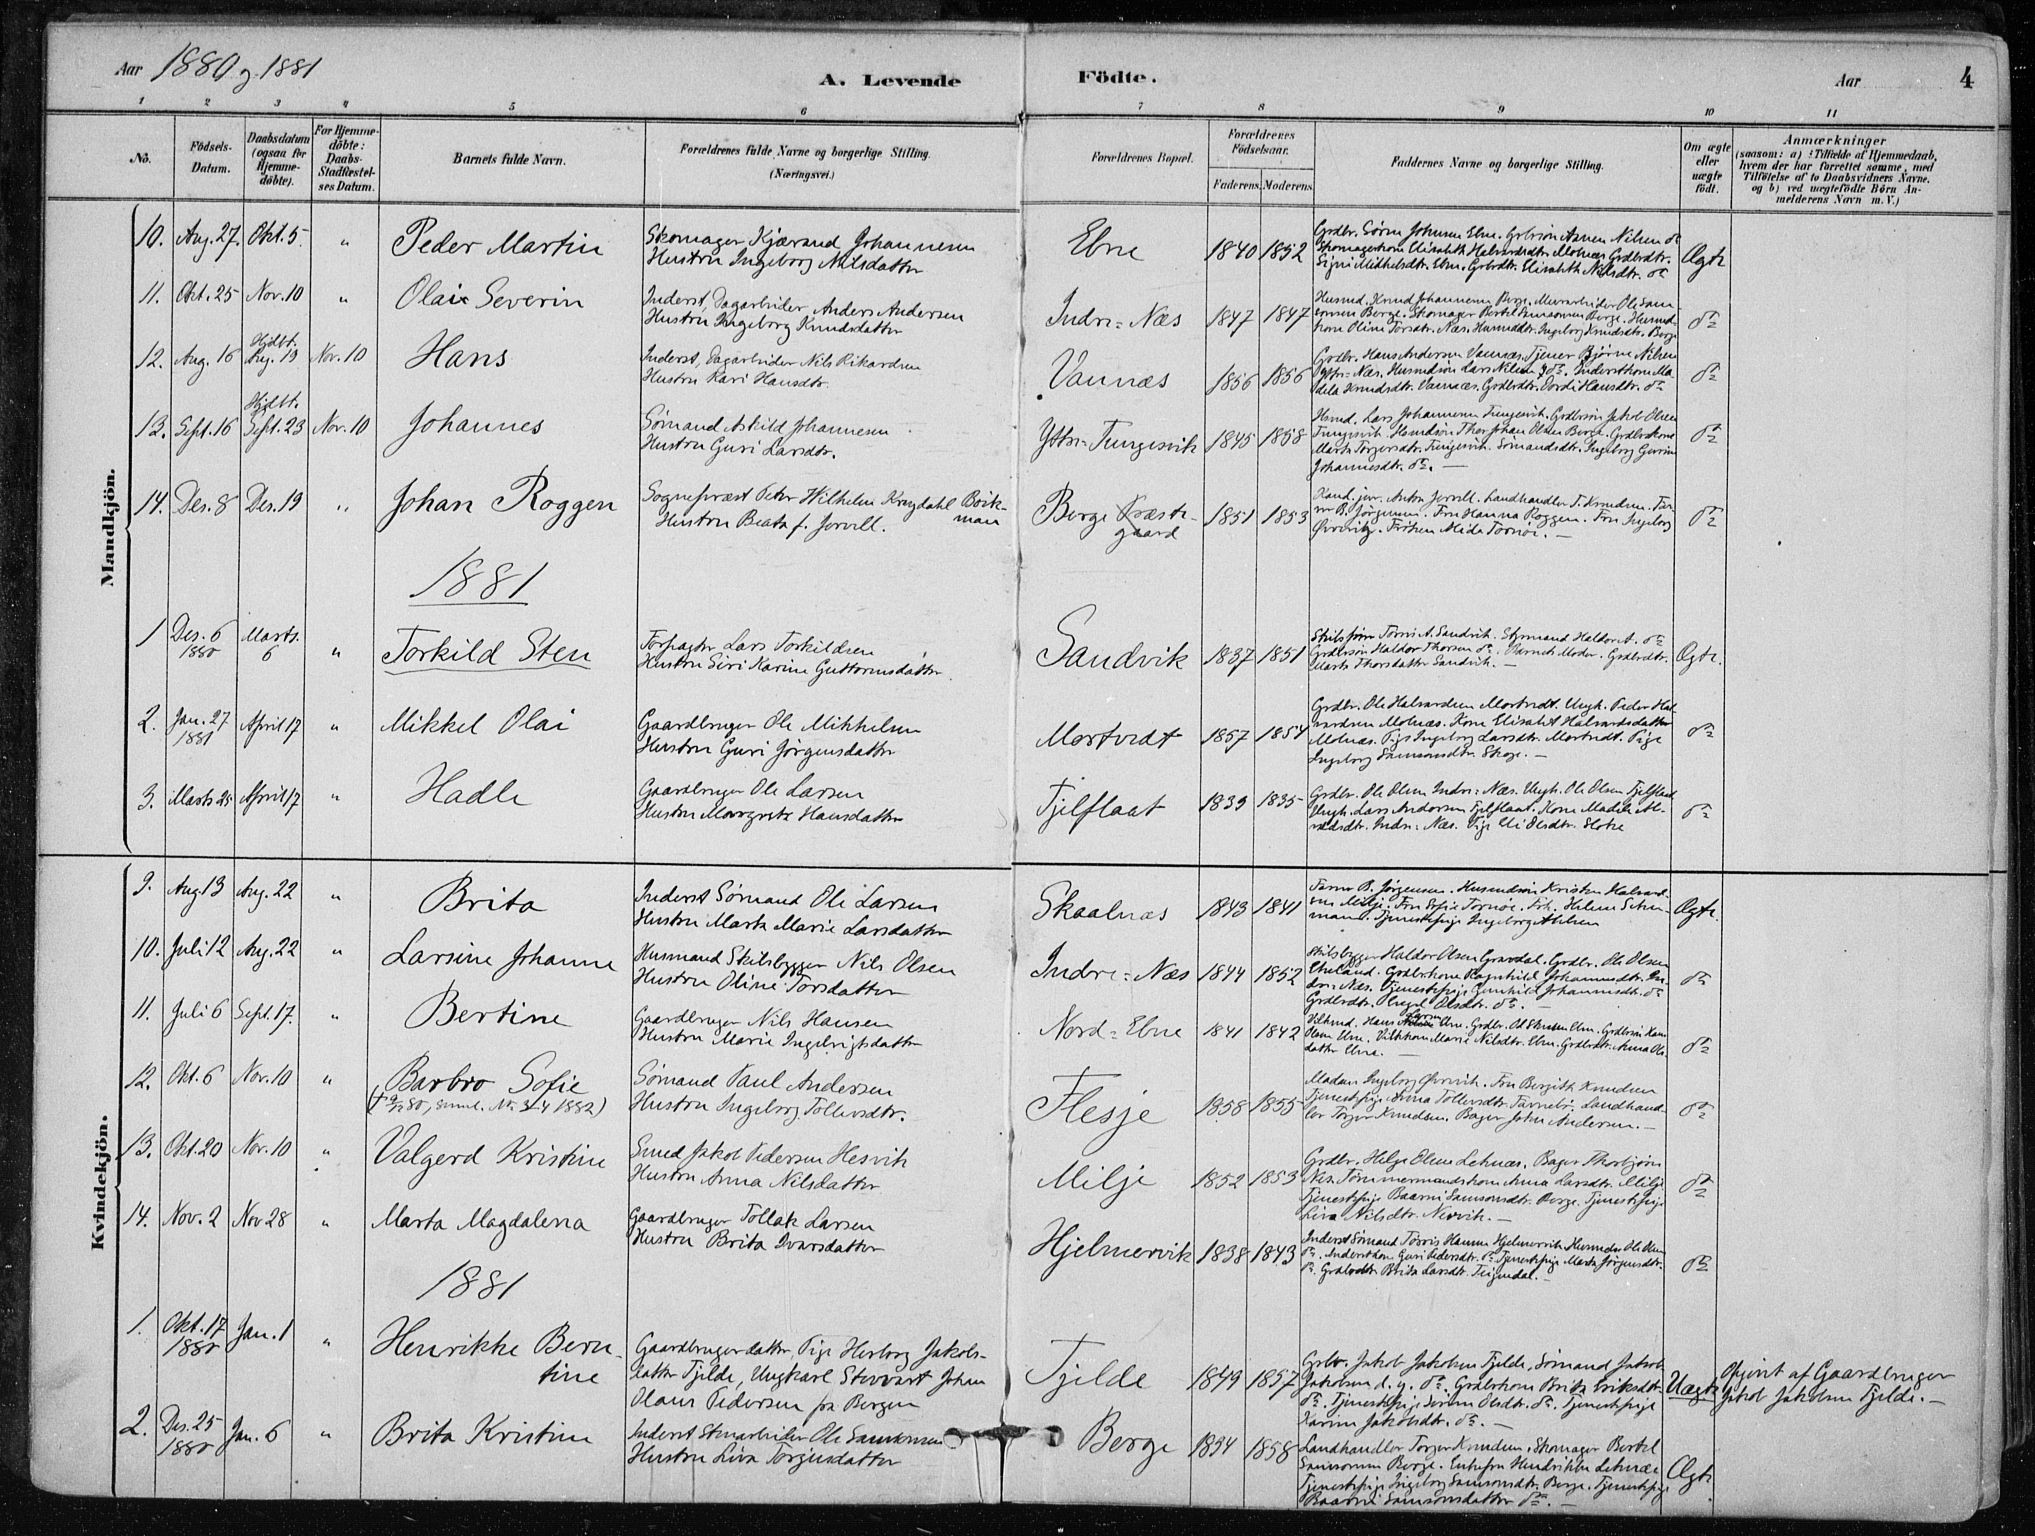 Aar 1880 og 1881
A. Levende Födte.
Aar
4
1 2 3 4 5 6 7 8 9 10 11
No.
Födsels-Datum.
Daabsdatum (ogsaa for Hjemme-döbte).
For Hjemme-döbte: Daabs-Stadfæstel-ses Datum.
Barnets fulde Navn.
Forældrenes fulde Navne og borgerlige Stilling.
(Næringsvei.)
Forældrenes Bopæl.
Forældrenes Födselsaar.
Faderens. Moderens.
Faddernes Navne og borgerlige Stilling.
Om ægte eller uægte födt.
Anmærkninger
(saasom: a) i Tilfælde af Hjemmedaab,
hvem der har forrettet samme, med
Tilföielse af to Daabsvidners Navne.
og b) ved uægtefödte Börn An-
melderens Navn m. V.)
Mandkjön.
10. Aug. 27. Okt. 5. " Peder Martin
Skomager Kjærand Johannesen
Hustru Ingeborg Nilsdatter
Ebne 1840 1852
Grdbr. Sörn Johnsen Ebne. Grdbrsön Asmen Nilsen do
Skomagerkone Elisabeth Halvardsdtr. Molnæs. Grdbrdtr.
Signi Mikkelsdtr. Ebne. Grdbrdtr. Elisabeth Nilsdtr. do
Ægte
11. Okt. 25 Nov. 10 " Olai Severin
Inderst, Dagarbeider Anders Andersen
Hustru Ingeborg Knudsdatter
Indre=Næs 1847 1847
Husmd. Knud Johannesen Berge. Murarbeider Ole Sam-
sonsen Berge. Skomager Bertil Samsonsen Berge. Husmd-
kone Oline Torsdtr. Næs. Husmddtr. Ingeborg Knudsdtr. Berge
do
12. Aug. 16 Hjdbt. Aug. 19 Nov. 10 Hans
Inderst, Dagarbeider Nils Rikardsen
Hustru Kari Hansdtr.
Vannæs 1856 1856
Grdbr. Hans Andersen Vannæs. Tjener Björne Nilsen
Yttre=Næs. Husmdsön Lars Nilsen do. Inderstkone Ma-
dela Knudsdtr. Vannæs. Grdbrdtr. Dordi Hansdtr. do
do
13. Sept. 16 Hjdbt. Sept. 23 Nov. 10 Johannes
Sömand Askild Johannesen
Hustru Guri Larsdtr.
Yttre=Tungesvik 1845 1858
Husmd. Lars Johannesen Tungesvik. Grdbrsön Jakob Olsen
Tungesvik. Husmdsön Thor Johan Olsen Berge. Grdbrkone
Marta Torgersdtr. Tungesvik. Sömandsdtr. Ingeborg Gurine
Johannesdtr. do. —
do
14. Des. 8 Des. 19 " Johan Roggen
Sognepræst Peter Wilhelm Kreydahl Böck-
man
Hustru Beata f. Jervell.
Berge Præste-
gaard 1851 1853
Kand. jur. Anton Jervell. Landhandler T. Knudsen. Far-
ver B. Jörgensen. Fru Hanna Roggen. Fru Ingeborg
Övrevik. Fröken Mida Tornöe. —
do
1881
1 Des. 6 1880 Marts. 6 " Torkild Sten
Forpagter Lars Torkildsen
Hustru Siri Karine Guttormsdatter
Sandvik 1837 1851
Skibsförer Torris A. Sandvik. Styrmand Haldor A. do
Grdbrsön Haldor Thorsen do. Barnets Moder. Grdbrdtr.
Marta Thorsdatter Sandvik. —
Ægte.
2. Jan. 27 1881 April 17 " Mikkel Olai
Gaardbruger Ole Mikkelsen
Hustru Guri Jörgensdatter
Mortvedt 1857 1854
Grdbr. Ole Halvardsen Mortvedt. Ungk. Peder Hal-
vardsen Molnæs. Kone Elisabet Halvardsdatter
Molnæs. Pige Ingeborg Larsdtr. Mortvedt. Pige
Ingeborg Samsonsdtr. Skoge. —
do
3. Marts 25 April 17 " Hadle
Gaardbruger Ole Larsen
Hustru Margrete Hansdatter
Tjelflaat 1839 1835
Grdbr. Ole Olsen Indre=Næs. Ungk. Ole Olsen Tjelflaat
Ungk. Lars Andersen Tjelflaat. Kone Madela Al-
vældsdtr. Indre=Næs. Pige Eli Olsdtr. Slotre
do
Kvindekjön.
9. Aug. 13 Aug. 22 " Brita
Inderst Sömand Ole Larsen
Hustru Marta Marie Larsdatter
Skaalnæs 1843 1841
Farver B. Jörgensen. Husmdsön Kristen Halvard-
sen Milje. Fru Sofie Tornöe. Frk. Helene Schu-
mann. Tjenestepige Ingeborg Abelsen
Ægte.
10. Juli 12 Aug. 22 " Larsine Johanne
Husmand Skibsbygger Nils Olsen
Hustru Oline Torsdatter
Indre=Næs 1844 1852
Skibsbygger Haldor Olsen Gravdal. Grdbr. Ole Olsen
Ekeland. Grdbrkone Ragnhild Johannesdtr. In-
dre=Næs. Tjenestepige Gunhild Johannesdtr. do
Grdbrdtr. Engel Olsdtr. do. —
do
11. Juli 6 Sept. 17. " Bertine
Gaardbruger Nils Hansen
Hustru Marie Ingebrigtsdatter
Nord=Ebne 1841 1842
Vilkmd. Hans Larsen Ebne. Grdbr. Ol Stensen Ebne. Grdbrsön Hans
Olsen Ebne. Vilkkone Marie Nilsdtr. Ebne. Grdbrdtr. Anna Ols-
datter Ebne. —
do
12. Okt. 6 Nov. 10 " Barbro Sofie
Sömand Paul Andersen
Hustru Ingeborg Tollevsdtr.
Flesje 1858 1855
Madam Ingeborg Övrevik. Fru Bergith Knudsen
Tjenestepige Anna Tollevsdtr. Favnebö. Landhand-
ler Torger Knudsen. Bager John Andersen. —
do
13. Okt. 20 Nov. 10 " Valgerd Kristine
Smed Jakob Pedersen Hesvik
Hustru Anna Nilsdatter
Milje 1852 1853
Grdbr. Helge Olsen Leknæs. Bager Thorbjörn
Næs. Tömmermandskone Anna Larsdtr. Milje
Tjenestepige Baarni Samsonsdtr. Berge. Tjenestepige
Liva Nilsdtr. Nesvik. —
do
14. Nov. 2 Nov 28 " Marta Magdalena
Gaardbruger Tollak Larsen
Hustru Brita Ivarsdatter
Hjelmervik 1838 1843
Inderst Sömand Torris Hansen Hjelmervik. Husmdsn Ole Olsen
do. Inderstkone Guri Pedersdtr. do Tjenestepige Marta Jörgensdtr.
do. Grdbrdtr. Brita Larsdtr. Teigendal. —
do
1881
1. Okt. 17 1880 Jan. 1 " Henrikke Bern-
tine
Gaardbrugerdatter, Pige Herborg Jakobs-
datter Tjelde, Ungkarl Stuvart Johan
Olaus Pedersen fra Bergen
Tjelde 1849 1857
Grbr. Jakob Jakobsen Tjelde, Sömand Jakob
Jakobsen d. y. do. Grdbrkone Brita Eriksdtr.
do. Tjenestepige Sörine Olsdtr. do. Tjenestepige
Karine Jakobsdtr. do. —
Uægte
Opgivet af Gaardbruger
Jakob Jakobsen Tjelde. —
2. Des. 25 1880 Jan. 6 " Brita Kristine
Inderst Stenarbeider Ole Samsonsen
Hustru Liva Torgersdatter
Berge 1854 1858
Landhandler Torger Knudsen. Skomager Bertel
Samsonsen Berge. Enkefru Hendrikke Leknæs
Tjenestepige Ingeborg Samsonsdtr. Berge. Tjenestepige
Baarni Samsonsdatter do. —
Ægte